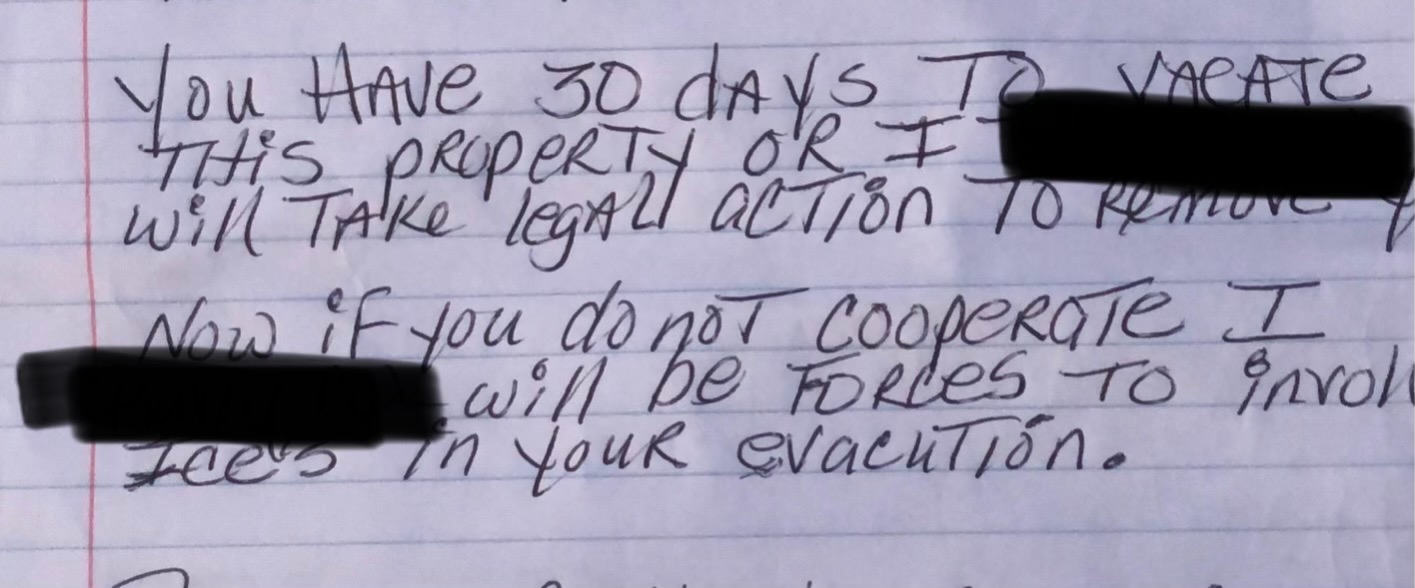 You HAVE 30 dAYS TO VACATE
THis pROpeRTy OR I
will TAKe legAll acTion TO Remove
Now iF you do noT cooperaTe I
will be FORces TO
Ice's in youR evacuTion.